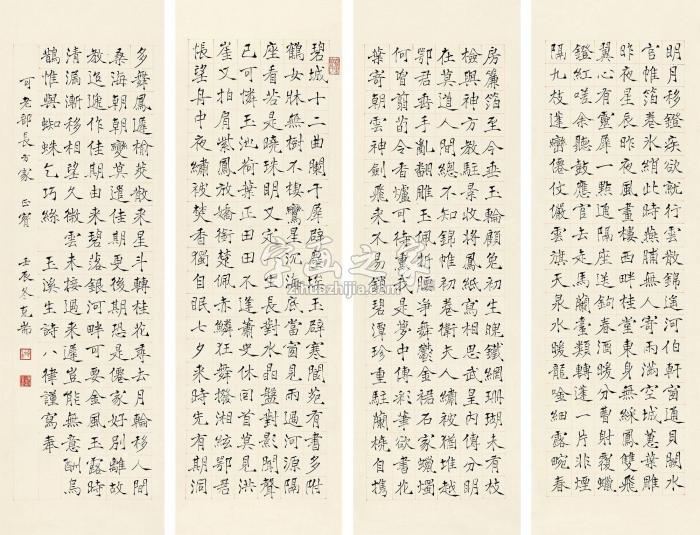 明月移鐙疾欲就行雲散錦遙河伯貝闕水
官帷箔卷冰綃此時燕脯無人寄雨滿空城蕙葉雕
昨夜星辰昨夜風畫樓西畔桂堂東身無綵鳳雙飛
翼心有靈犀一點通隔座送鉤春酒暖分曹射覆蠟
鐙紅嗟余聽鼓應官去走馬蘭臺類轉蓬一片非煙
隔九枝蓬巒僊仗儼雲旗天泉水暖龍唫細露畹春
房簾箔至今垂玉輪顧兔初生魄鐵網珊瑚未有枝
檢與神方教駐景收將鳳紙寫相思武皇內傳分明
在莫道人間總不知錦帷初卷衛夫人繡被猶堆越
鄂君垂手亂翻雕玉佩折腰爭舞鬱金裙石家蠟燭
何曾翦荀令香爐可待熏我是夢中傳彩筆欲書花
葉寄朝雲神劍飛來不易銷碧潭珍重駐蘭橈自攜
碧城十二曲闌干犀辟塵埃玉辟寒閬苑有書多附
鶴女牀無樹不棲鸞星沉海底當窗見雨過河源隔
座看若是曉珠明又定一生長對水晶盤對影聞聲
已可憐玉池荷葉正田田不逢蕭史休回首莫見洪
崖又拍肩紫鳳放嬌銜楚佩赤鱗狂舞撥湘絃鄂君
悵望舟中夜繡被焚香獨自眠七夕來時先有期洞
多舞鳳遲榆莢散來星斗轉桂花尋去月輪移人間
桑海朝朝變莫遣佳期更後期恐是僊家好別離故
教迢遞作佳期由來碧落銀河畔可要金風玉露時
清漏漸移相望久微雲未接過來遲豈能無意酬烏
鵲惟與蜘蛛乞巧絲 玉溪生詩八律謹寫奉
可老部長方家 正 壬辰冬克耑
字画之家
huashizhijia.com